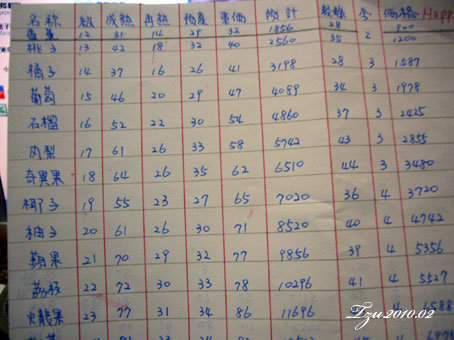 名称 級 成熟 再熟 預產 單價 預計 經驗 季 價格 Happ
香蕉 12 31 14 29 32 1856 28 900
桃子 13 42 18 32 40 2560 35 2 1200
橘子 14 37 16 26 41 3198 28 3 1587
葡萄 15 46 20 29 47 4089 34 3 1978
石榴 16 52 22 30 54 4860 37 3 2425
肉梨 17 61 26 33 58 5742 43 3 2855
奇異果 18 64 26 35 62 6510 44 3 3480
椰子 19 55 23 27 65 7020 36 4 3720
柚子 20 61 26 30 71 8520 40 4 4742
蘋果 21 70 29 32 77 9856 39 4 5356
荔枝 22 72 30 33 78 10296 41 4 5527
火龍果 23 77 31 34 86 11696 4 6588
Tzu 2010.02